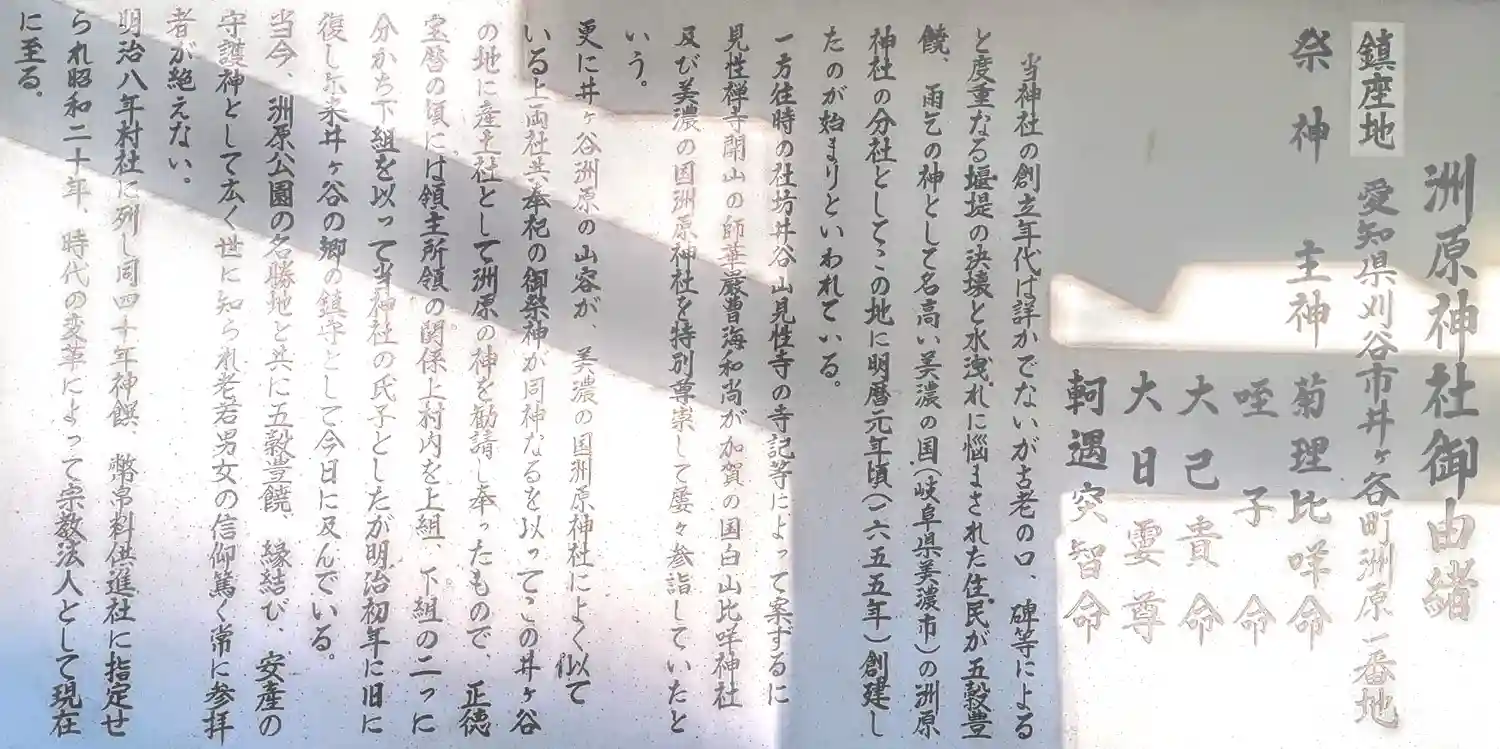 洲原神社御由緒
鎮座地 愛知県刈谷市井ヶ谷町洲原一番地
祭神 主神 菊理比咩命
咥子命
大己貴命
大日孁尊
軻遇突智命
当神社の創立年代は詳かでないが古老の口、碑等による
と度重なる堰堤の決壊と水洩れに悩まされた住民が五穀豊
饒、雨乞の神として名高い美濃の国(岐阜県美濃市)の洲原
神社の分社としてこの地に明暦元年頃(一六五五年)創建し
たのが始まりといわれている。
一方往時の社坊井谷山見性寺の寺記等によって案ずるに
見性禅寺開山の師華厳曹海和尚が加賀の国白山比咩神社
及び美濃の国洲原神社を特別尊崇して屡々参詣していたと
いう。
更に井ヶ谷洲原の山容が、美濃の国洲原神社によく似て
いる上両社共奉祀の御祭神が同神なるを以ってこの井ヶ谷
の地に産土社として洲原の神を勧請し奉ったもので、正徳
宝暦の頃には領主所領の関係上村内を上組、下組の二つに
分かち下組を以って当神社の氏子としたが明治初年に旧に
復し尓来井ヶ谷の郷の鎮守として今日に及んでいる。
当今、洲原公園の名勝地と共に五穀豊饒、縁結び、安産の
守護神として広く世に知られ老若男女の信仰篤く常に参拝
者が絶えない。
明治八年村社に列し同四十年神饌、幣帛料供進社に指定せ
られ昭和二十年、時代の変革によって宗教法人として現在
に至る。